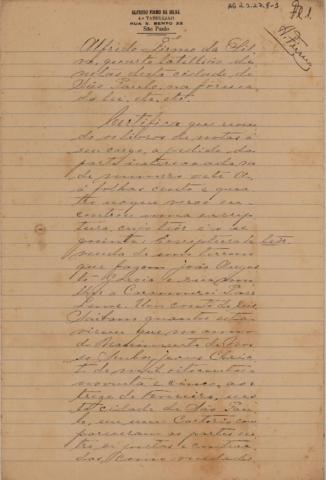 ALFREDO FIRMO DA SILVA
4º TABELLIÃO
RUA S. BENTO
São Paulo
Fl. 1.
A. Firmo
Alfredo Firmo da Sil-
va, quarto tabellião de
notas desta cidade de
São Paulo, na forma
da lei, etc, etc.
Certifico que reven-
do os livros de notas a
seu cargo, a pedido da
parte interessada, 
de numero sete
á folhas cento e qua-
tro verso en-
controu uma escrip-
tura cujo teor é o se-
guinte: Escriptura de
venda de um terreno
que fazem João Augus-
to Garcia e sua mu-
lher a
Leme. Um conto de reis
Saibam quantos este
virem que no anno
do Nascimento de Nos-
so Senhor Jesus Chris-
to de mil oitocentos e
noventa e cinco, aos
treze de Fevereiro, nes-
ta cidade de São Pau-
lo, em meu Cartorio com-
pareceram as partes en-
tre si justas e contrac-
tadas, como vendedo